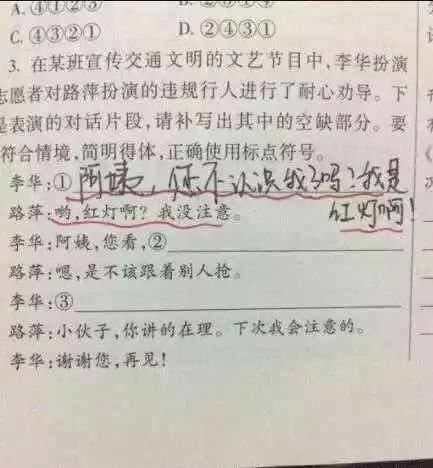 A.④①②③
C.④③②① D.②④③①
3.在某班宣传交通文明的文艺节目中,李华扮演
志愿者对路萍扮演的违规行人进行了耐心劝导。下
是表演的对话片段,请补写出其中的空缺部分。要
符合情境,简明得体,正确使用标点符号。
李华:①阿姨,你不认识我了吗?我是
红灯啊!
路萍:哟,红灯啊?我没注意。
李华:阿姨,您看,②
路萍:嗯,是不该跟着别人抢。
李华:③
路萍:小伙子,你讲的在理。下次我会注意的。
李华:谢谢您,再见!